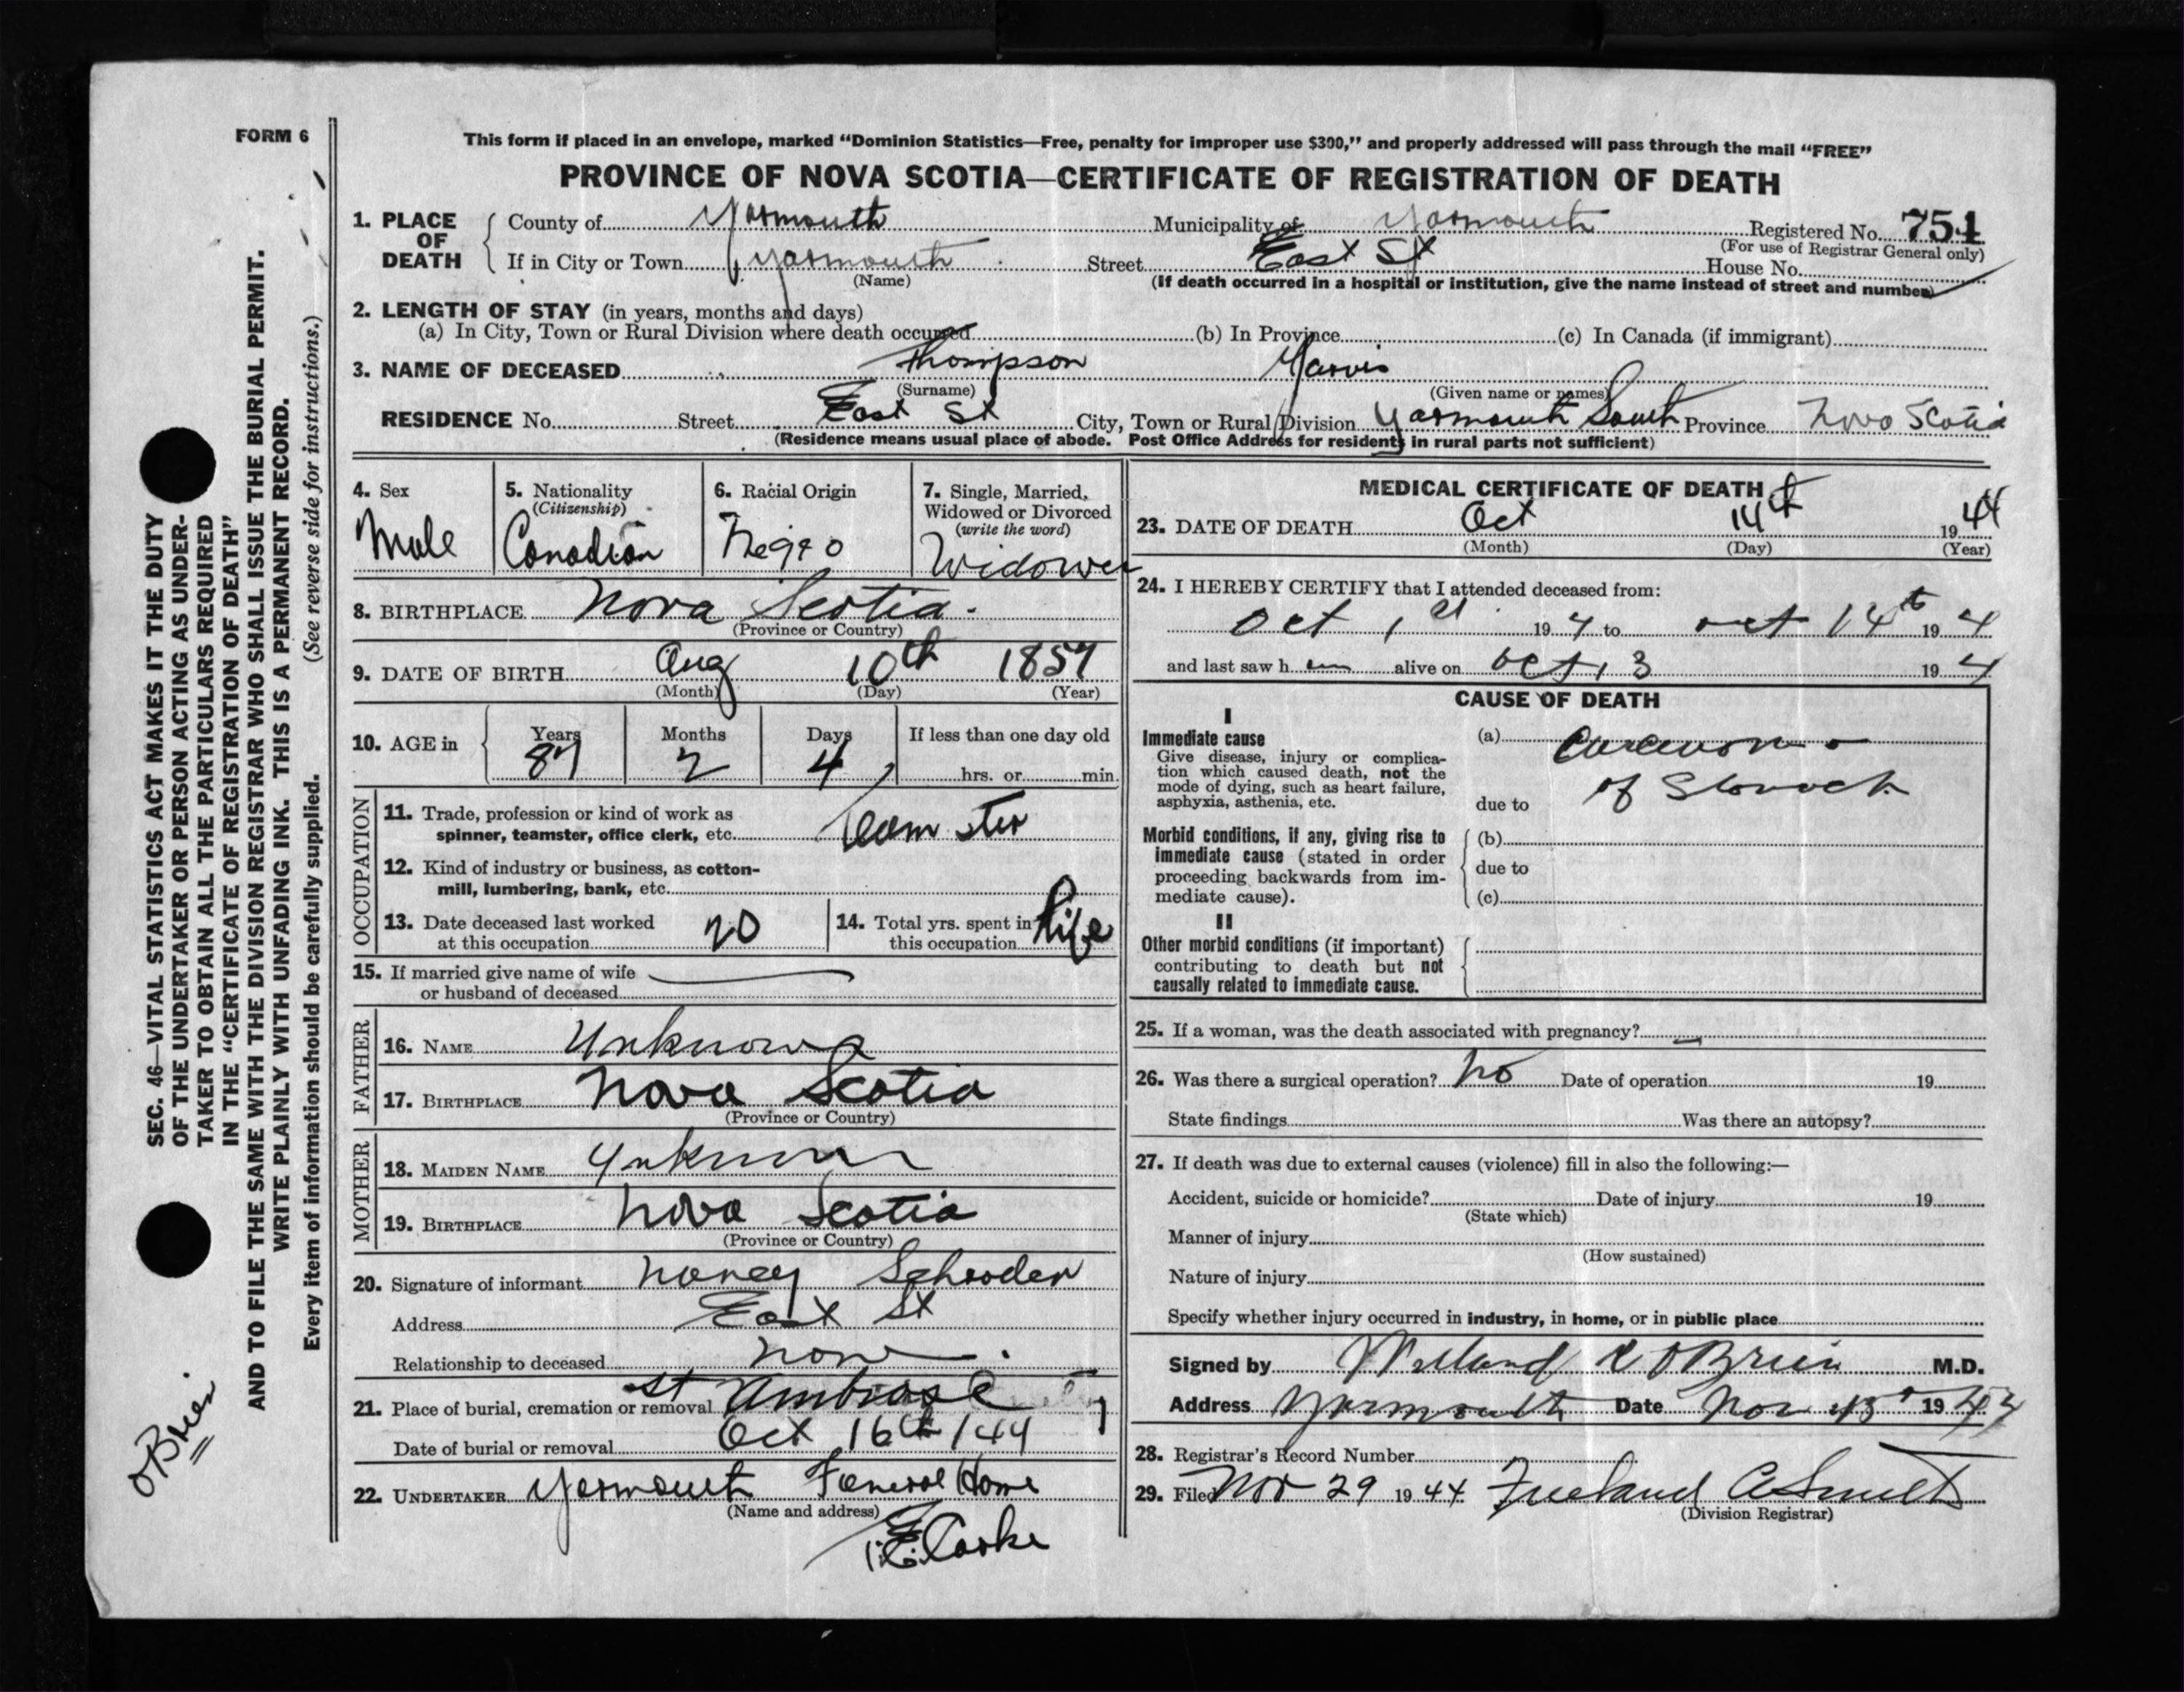 FORM 6
This form if placed in an envelope, marked "Dominion Statistics—Free, penalty for improper use $300," and properly addressed will pass through the mail "FREE"
PROVINCE OF NOVA SCOTIA—CERTIFICATE OF REGISTRATION OF DEATH
1. PLACE OF DEATH
County of Yarmouth Municipality of Yarmouth Registered No. 751
(For use of Registrar General only)
If in City or Town Yarmouth Street East St House No.
(Name) (If death occurred in a hospital or institution, give the name instead of street and number)
2. LENGTH OF STAY (in years, months and days)
(a) In City, Town or Rural Division where death occurred (b) In Province (c) In Canada (if immigrant)
3. NAME OF DECEASED Thompson
(Surname) (Given name or names)
RESIDENCE No. Street East St City, Town or Rural Division Yarmouth South Province Nova Scotia
(Residence means usual place of abode. Post Office Address for residents in rural parts not sufficient)
4. Sex
Male
5. Nationality
(Citizenship)
Canadian
6. Racial Origin
Negro
7. Single, Married,
Widowed or Divorced
(write the word)
Widower
8. BIRTHPLACE Nova Scotia.
(Province or Country)
9. DATE OF BIRTH Aug 10th 1857
(Month) (Day) (Year)
10. AGE in
Years Months Days If less than one day old
87 2 4 hrs. or min.
OCCUPATION
11. Trade, profession or kind of work as
spinner, teamster, office clerk, etc. Teamster
12. Kind of industry or business, as cotton-
mill, lumbering, bank, etc.
13. Date deceased last worked
at this occupation 20
14. Total yrs. spent in
this occupation life
15. If married give name of wife
or husband of deceased
FATHER
16. NAME Unknown
17. BIRTHPLACE Nova Scotia
(Province or Country)
MOTHER
18. MAIDEN NAME Unknown
19. BIRTHPLACE Nova Scotia
(Province or Country)
20. Signature of informant Nancy Schrader
Address East St
Relationship to deceased None.
21. Place of burial, cremation or removal St Ambrose
Date of burial or removal Oct 16th /44
22. UNDERTAKER Yarmouth Funeral Home
(Name and address)
MEDICAL CERTIFICATE OF DEATH
23. DATE OF DEATH Oct 14th 1944
(Month) (Day) (Year)
24. I HEREBY CERTIFY that I attended deceased from:
Oct 1st 194 to Oct 14th 194
and last saw h im alive on Oct 13 194
CAUSE OF DEATH
I
Immediate cause
Give disease, injury or complica-
tion which caused death, not the
mode of dying, such as heart failure,
asphyxia, asthenia, etc.
(a) Carcinoma
due to of Stomach
Morbid conditions, if any, giving rise to
immediate cause (stated in order
proceeding backwards from im-
mediate cause).
(b)
due to
(c)
II
Other morbid conditions (if important)
contributing to death but not
causally related to immediate cause.
25. If a woman, was the death associated with pregnancy? —
26. Was there a surgical operation? No Date of operation 19
State findings Was there an autopsy?
27. If death was due to external causes (violence) fill in also the following:—
Accident, suicide or homicide? Date of injury 19
(State which)
Manner of injury
(How sustained)
Nature of injury
Specify whether injury occurred in industry, in home, or in public place
Signed by O'Brien M.D.
Address Yarmouth Date Nov 19
28. Registrar's Record Number
29. Filed Nov 29 1944
(Division Registrar)
SEC. 46—VITAL STATISTICS ACT MAKES IT THE DUTY
OF THE UNDERTAKER OR PERSON ACTING AS UNDER-
TAKER TO OBTAIN ALL THE PARTICULARS REQUIRED
IN THE "CERTIFICATE OF REGISTRATION OF DEATH"
AND TO FILE THE SAME WITH THE DIVISION REGISTRAR WHO SHALL ISSUE THE BURIAL PERMIT.
WRITE PLAINLY WITH UNFADING INK. THIS IS A PERMANENT RECORD.
Every item of information should be carefully supplied. (See reverse side for instructions.)
OBrien